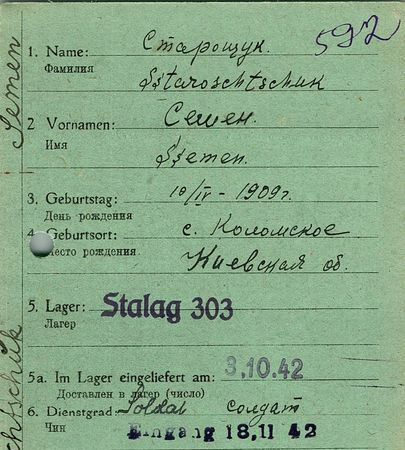 592
1. Name: Старощук.
Фамилия
Sstaroschtschuk
2 Vornamen: Семен.
Имя
Ssemen.
3. Geburtstag: 10/IV - 1909г.
День рождения
4. Geburtsort: с. Коломское
Место рождения
Киевская об.
5. Lager: Stalag 303
Лагер
5a. Im Lager eingeliefert am: 3.10.42
Доставлен в лагер (число)
6. Dienstgrad: Soldat солдат
Чин
Eingang 18.11 42
Semen
chtschuk